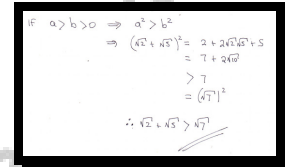 IF a > b > 0 ⇒ a² > b²
⇒ (√2 + √5)² = 2 + 2√2√5 + 5
= 7 + 2√10
> 7
= (√7)²
∴ √2 + √5 > √7